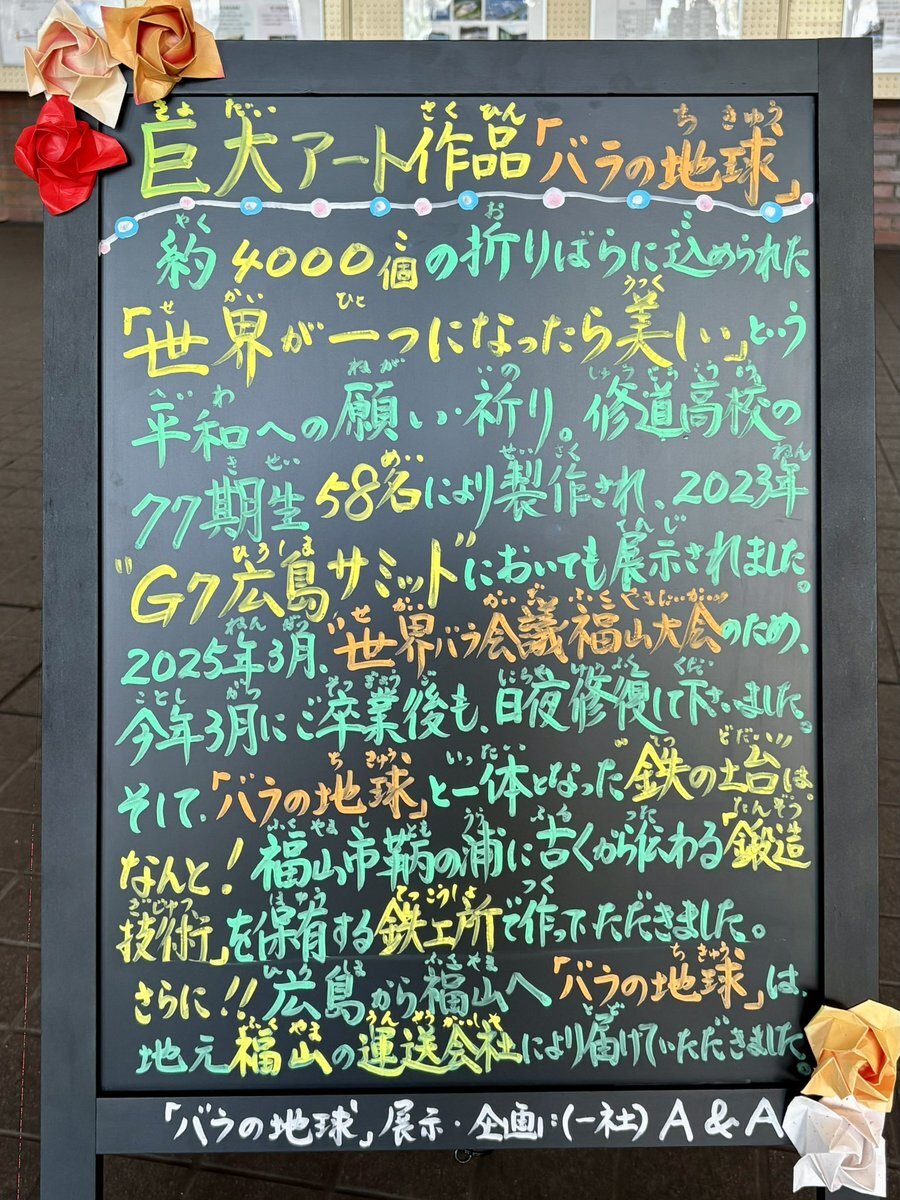 巨大アート作品「バラの地球」
約4000個の折りばらに込められた
「世界が一つになったら美しい」という
平和への願い・祈り。修道高校の
77期生58名により製作され、2023年
"G7広島サミット"においても展示されました。
2025年3月、"世界バラ会議福山大会"のため、
今年3月にご卒業後も、日夜修復して下さいました。
そして、「バラの地球」と一体となった"鉄の土台"は
なんと!福山市鞆の浦に古くから伝わる「鍛造
技術」を保有する鉄工所で作っていただきました。
さらに!!広島から福山へ「バラの地球」は、
地元福山の運送会社により届けていただきました。
「バラの地球」展示・企画:(一社)A&A